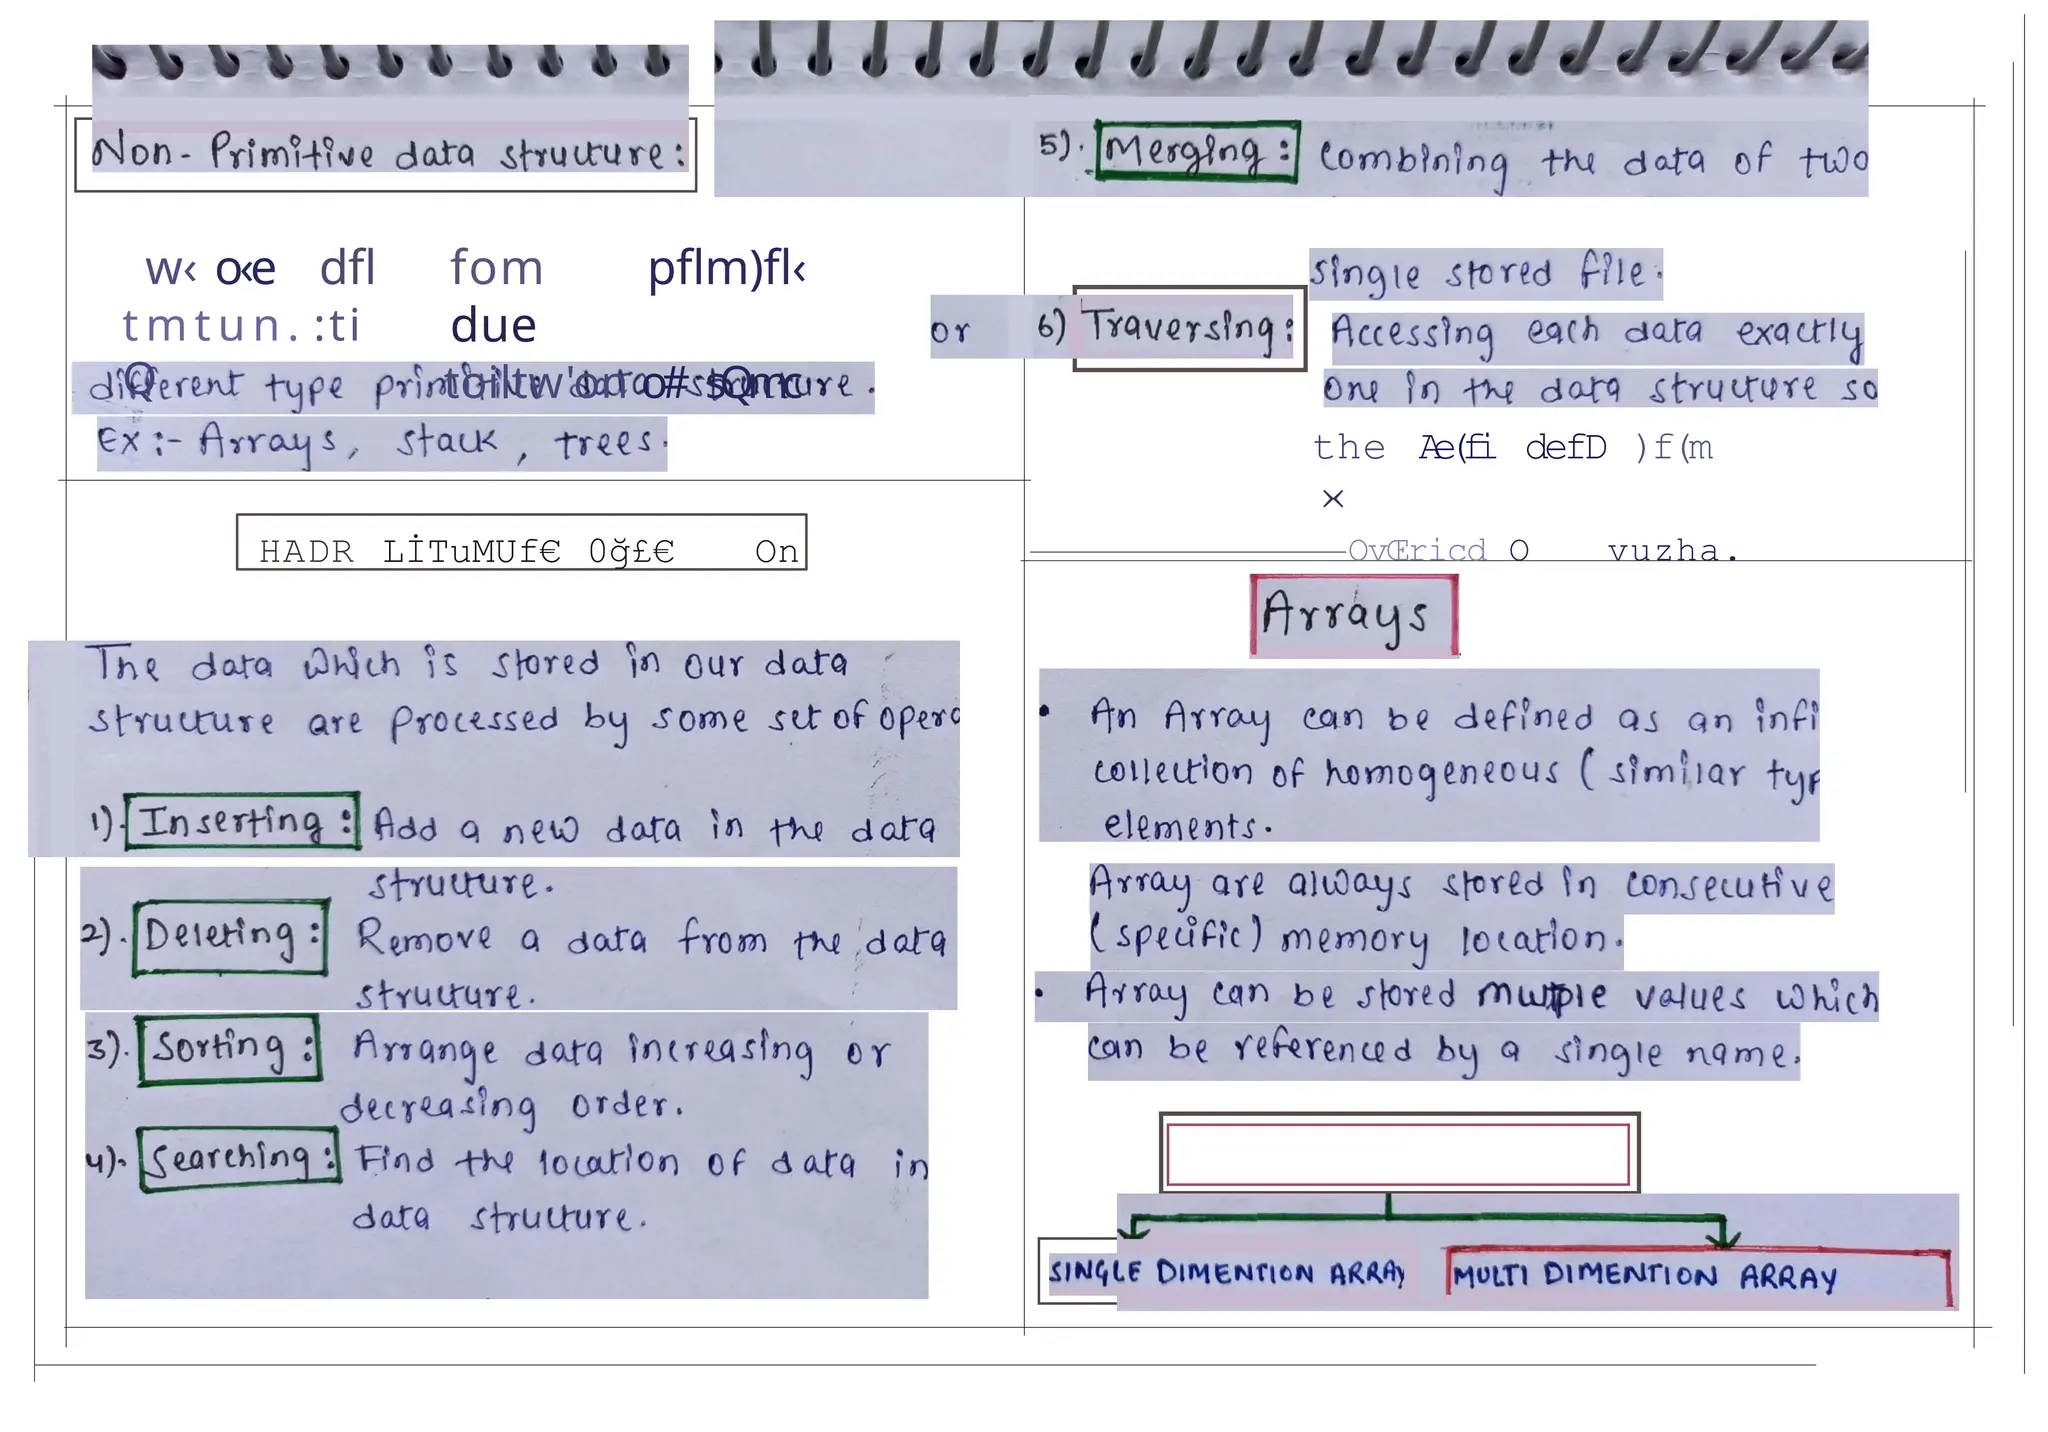 Non-Primitive data structure:
w‹ o‹e dfl fom pflm)fl‹
tmtun. :ti due
different type primitive data structure.
Ex:- Arrays, stack, trees.
HADR LİTuMUf€ 0ğ£€ On
The data which is stored in our data
structure are processed by some set of opera
1). Inserting: Add a new data in the data
structure.
2). Deleting: Remove a data from the data
structure.
3). Sorting: Arrange data increasing or
decreasing order.
4). Searching: Find the location of data in
data structure.
5). Merging: Combining the data of two
or
single stored file.
6) Traversing: Accessing each data exactly
one in the data structure so
the Æe(fi defD )f(m
×
OvŒricd O vuzha.
Arrays
• An Array can be defined as an infi
collection of homogeneous (similar typ
elements.
Array are always stored in consecutive
(specific) memory location.
• Array can be stored multiple values which
can be referenced by a single name.
SINGLE DIMENTION ARRAY
MULTI DIMENTION ARRAY